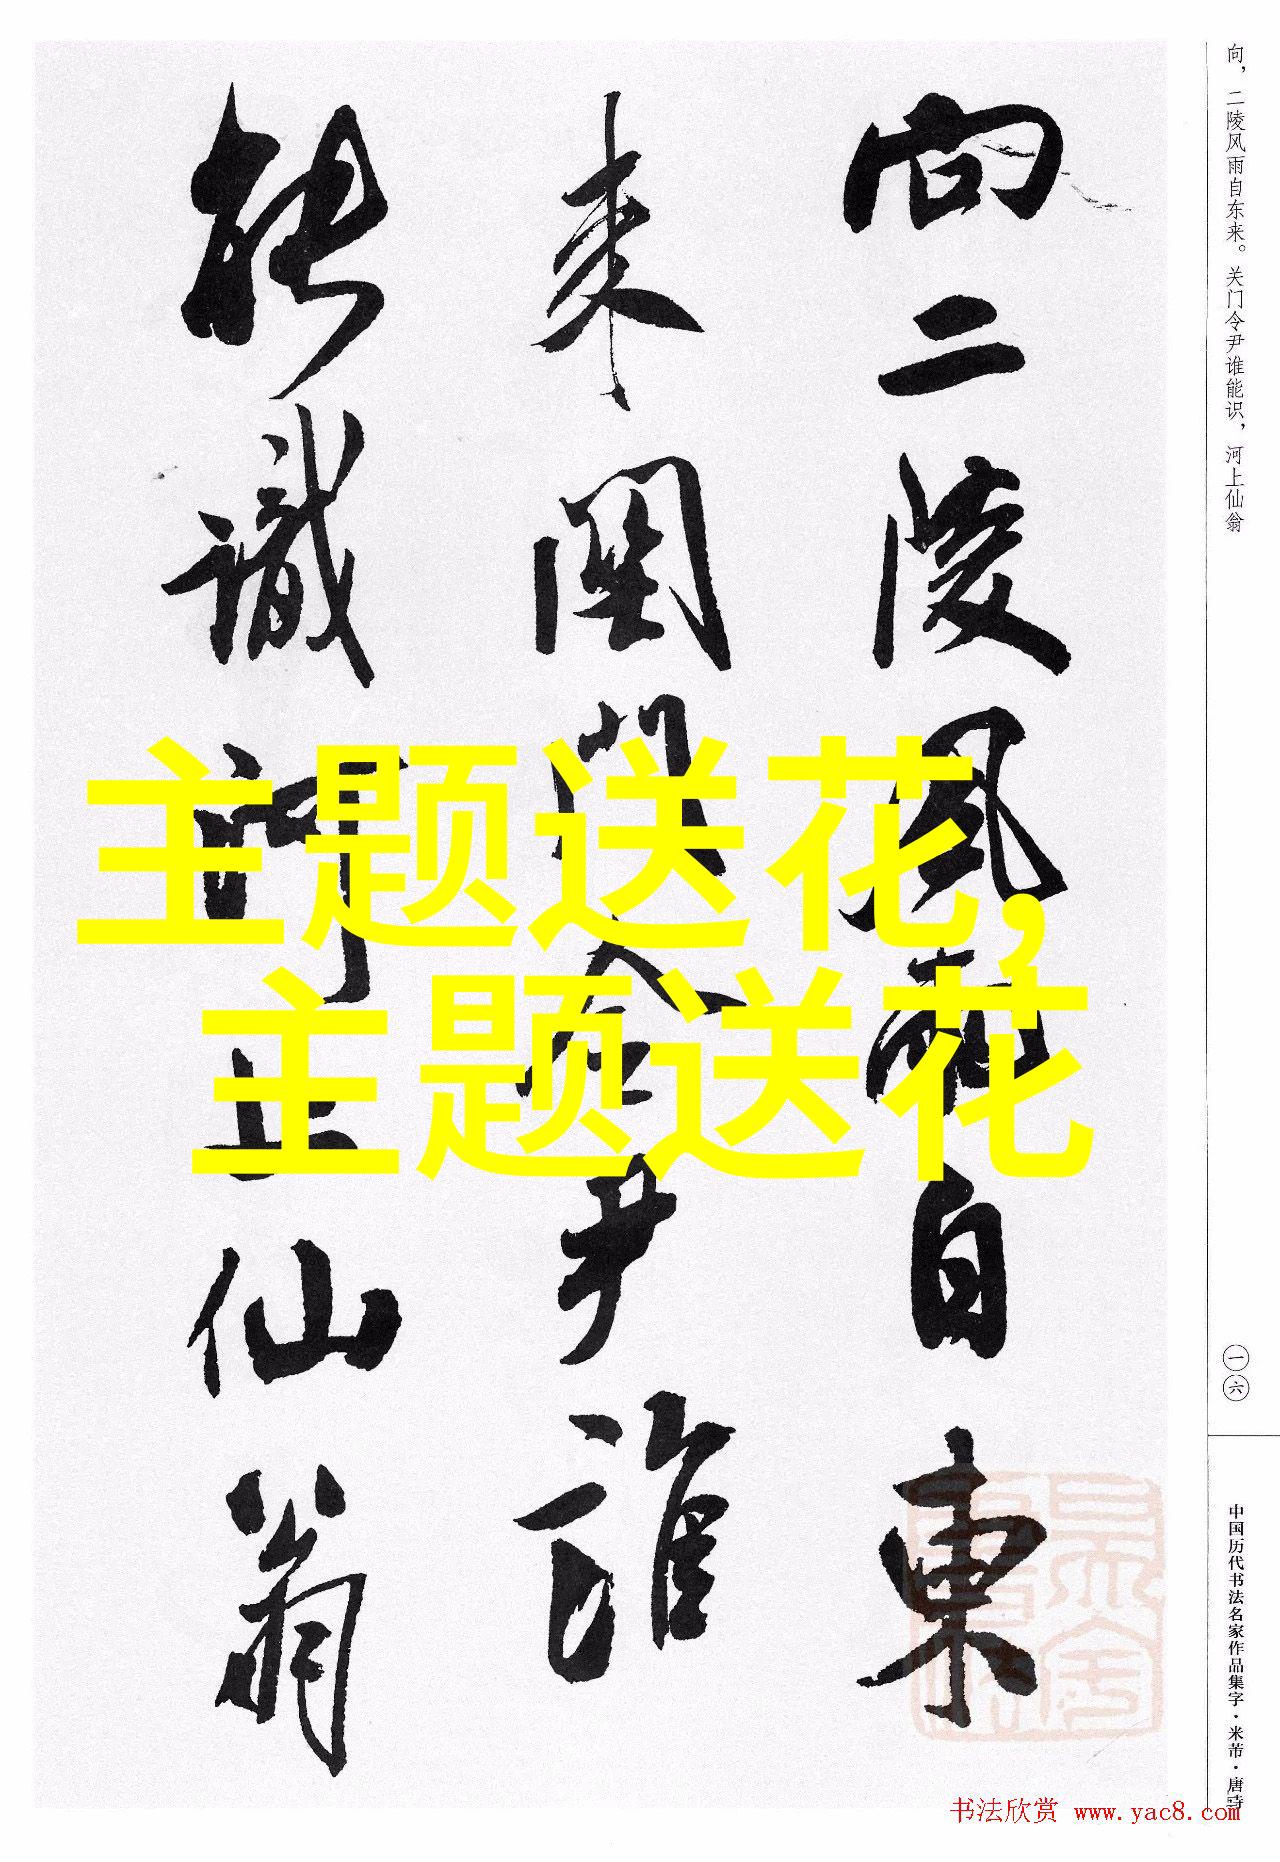 向二陵风雨自東
来関門令尹誰
能識河上仙翁
主题送花,
主题送花
向，二陵风雨自东来。关门令尹谁能识，河上仙翁
一六
中国历代书法名家作品集字·米芾·唐诗
书法欣赏 www.yac8.com